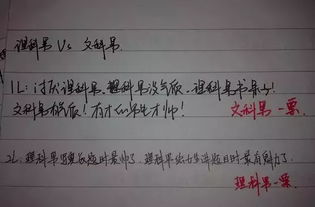 理科男 Vs 文科男
1L：讨厌理科男，理科男没气质，理科男书呆子！
文科男有气质！有才华的男生才帅！ 文科男一票
2L：理科男 最帅了，理科男给女生讲题目时最有魅力了。
理科男一票